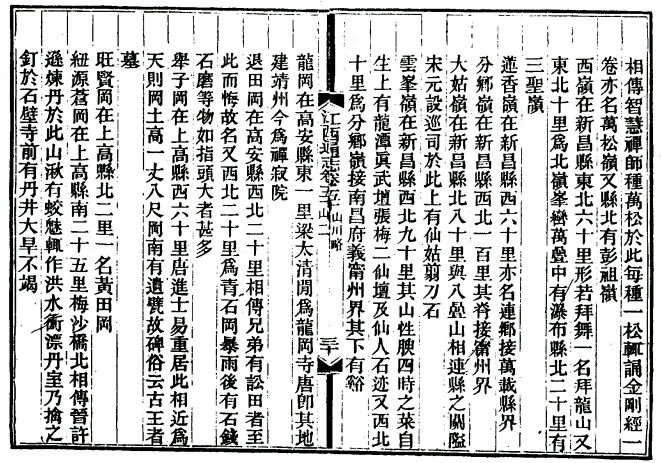 相傳智慧禪師種萬松於此每種一松輒誦金剛經一
卷亦名萬松嶺又縣北有彭祖嶺
西嶺在新昌縣東北六十里形若拜舞一名拜龍山又
東北十里爲北嶺峯巒萬疊中有瀑布縣北二十里有
三聖嶺
蓮香嶺在新昌縣西六十里亦名連鄉接萬載縣界
分鄉嶺在新昌縣西北一百里其脊接甯州界
大姑嶺在新昌縣北八十里與八疊山相連縣之關隘
宋元設巡司於此上有仙姑剪刀石
雲峯嶺在新昌縣西北九十里其山性腴四時之菜自
生上有龍潭眞武壇張梅二仙壇及仙人石迹又西北
十里爲分鄉嶺接南昌府義甯州界其下有谿
江西通志卷五 山川略 山二 三十
龍岡在高安縣東一里梁太清閒爲龍岡寺唐卽其地
建靖州今爲禪寂院
退田岡在高安縣西北二十里相傳兄弟有訟田者至
此而悔故名又西北二十里爲青石岡暴雨後有石錢
石磨等物如指頭大者甚多
舉子岡在上高縣西六十里唐進士易重居此相近爲
天則岡土高一丈八尺岡南有遺甓故碑俗云古王者
墓
旺賢岡在上高縣北二里一名黃田岡
紐源蒼岡在上高縣南二十五里梅沙橋北相傳晉許
遜煉丹於此山湫有蛟魅輒作洪水衝漂丹室乃擒之
釘於石壁寺前有丹井大旱不竭